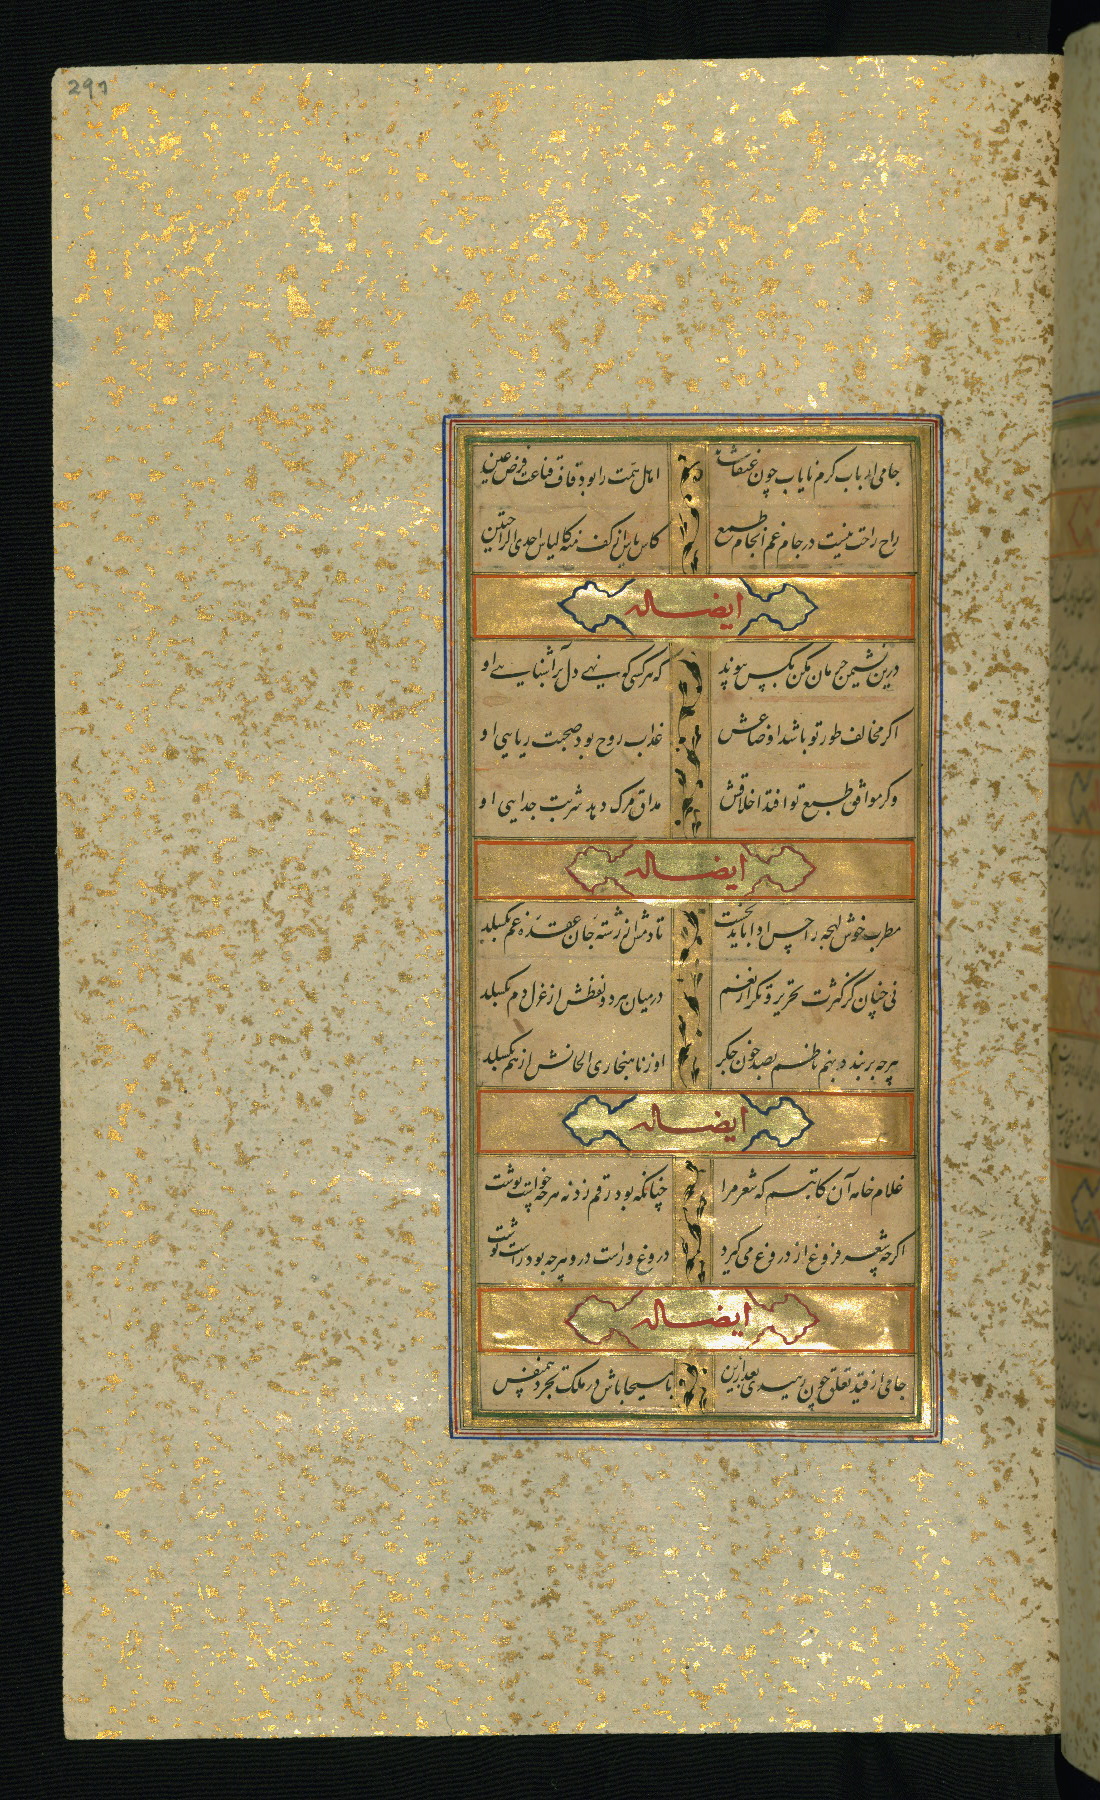 297
جامی ارباب کرم نایاب چون عنقا شدند
اهل همت را بود قاف قناعت فرض عین
راح راحت نیست در جام غم انجام طمع
کاس یاس از کف منه کالیاس احدی الراحتین
ایضا له
درین نشیمن حرمان مکن بکس پیوند
که هر کسی که نهی دل بر آشنایی او
اگر مخالف طور تو باشد اوضاعش
عذاب روح بود صحبت ریایی او
وگر موافق طبع تو افتد اخلاقش
مذاق مرگ دهد شربت جدایی او
ایضا له
مطرب خوش لهجه را چس ادا باید نخست
تا دمش از رشته جان عقده غم بگسلد
نی چنان کز کثرت تحریر و تکرار نغم
در میان هر دو لفظش از غزل دم بگسلد
هر چه بربندد بهم ناظم بصد خون جگر
او ز ناهنجاری الحانش از هم بگسلد
ایضا له
غلام خامه آن کاتبم که شعر مرا
چنانکه بود رقم زد نه هر چه خواست نوشت
اگر چه شعر فروغ از دروغ می گیرد
دروغ و راست درو هر چه بود راست نوشت
ایضا له
جامی از قید تعلق چون رمیدی بعد ازین
با مسیحا باش در ملک تجرد همنفس